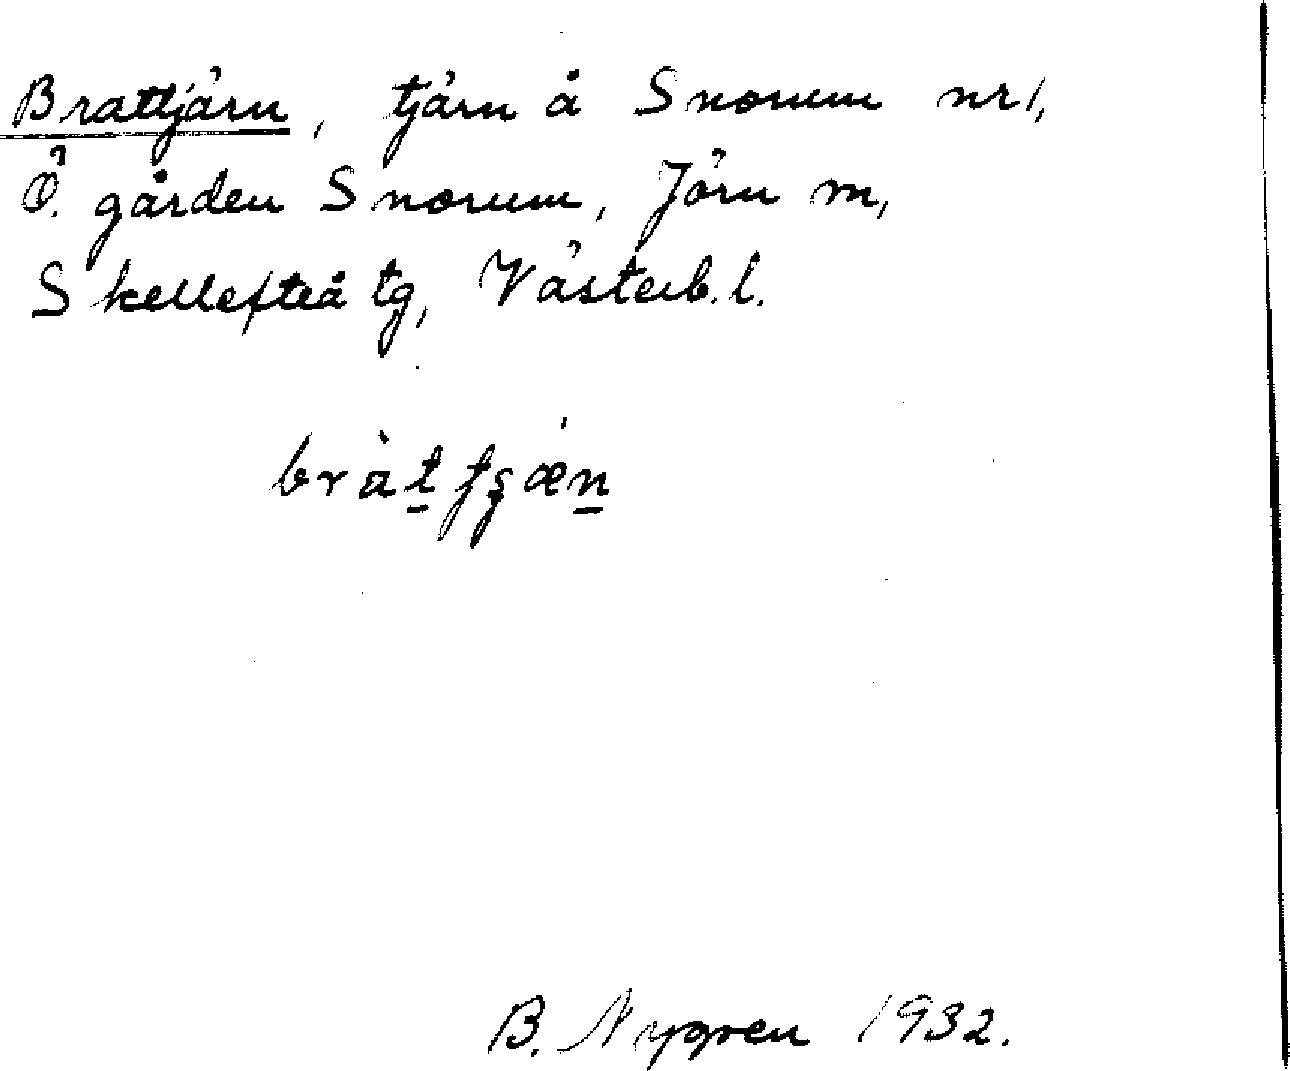 Brattjärn, tjärn å Snorum nr 1,
Ö. gården Snorum, Jörn sn,
Skellefteå tg, Västerb. l.
bràt̲ ʈʂæ̀n̲
B. Nygren 1932.